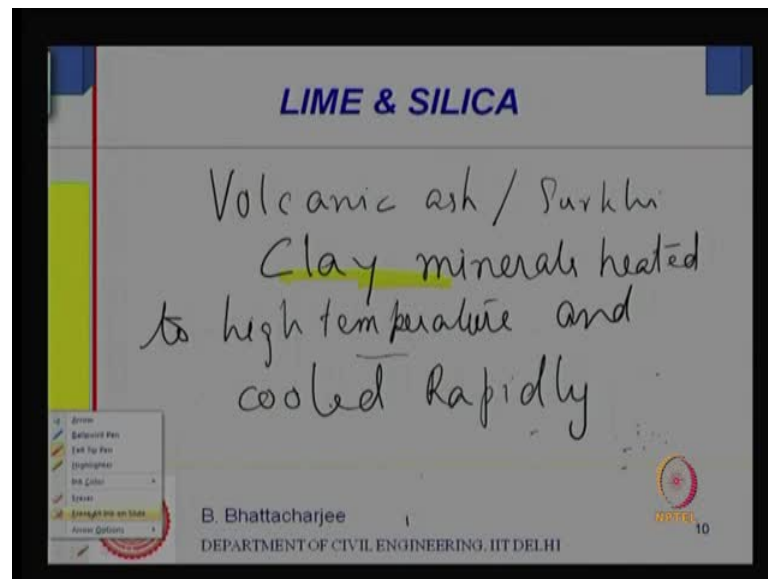 LIME & SILICA
Volcanic ash / Surkhi
Clay minerals heated
to high temperature and
cooled Rapidly
Arrow
Ballpoint Pen
Felt Tip Pen
Highlighter
Ink Color
Eraser
Erase All Ink on Slide
Arrow Options
B. Bhattacharjee
DEPARTMENT OF CIVIL ENGINEERING, IIT DELHI
NPTEL
10